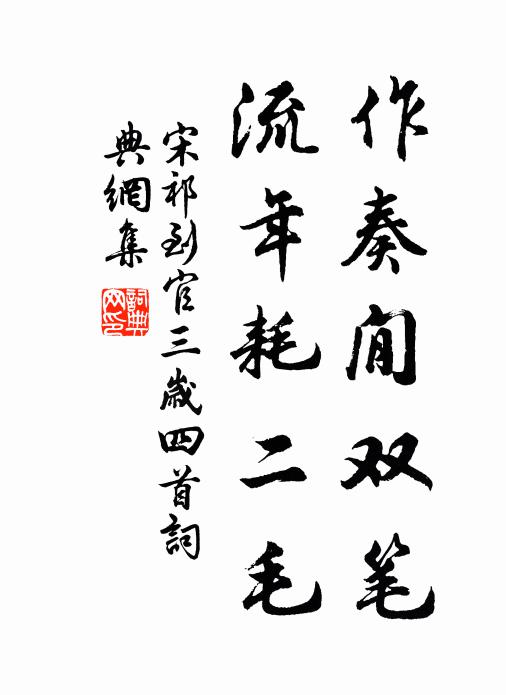 作奏闲双笔
流年耗二毛
宋祁到官三歲四首詞
典網集
詞典网印